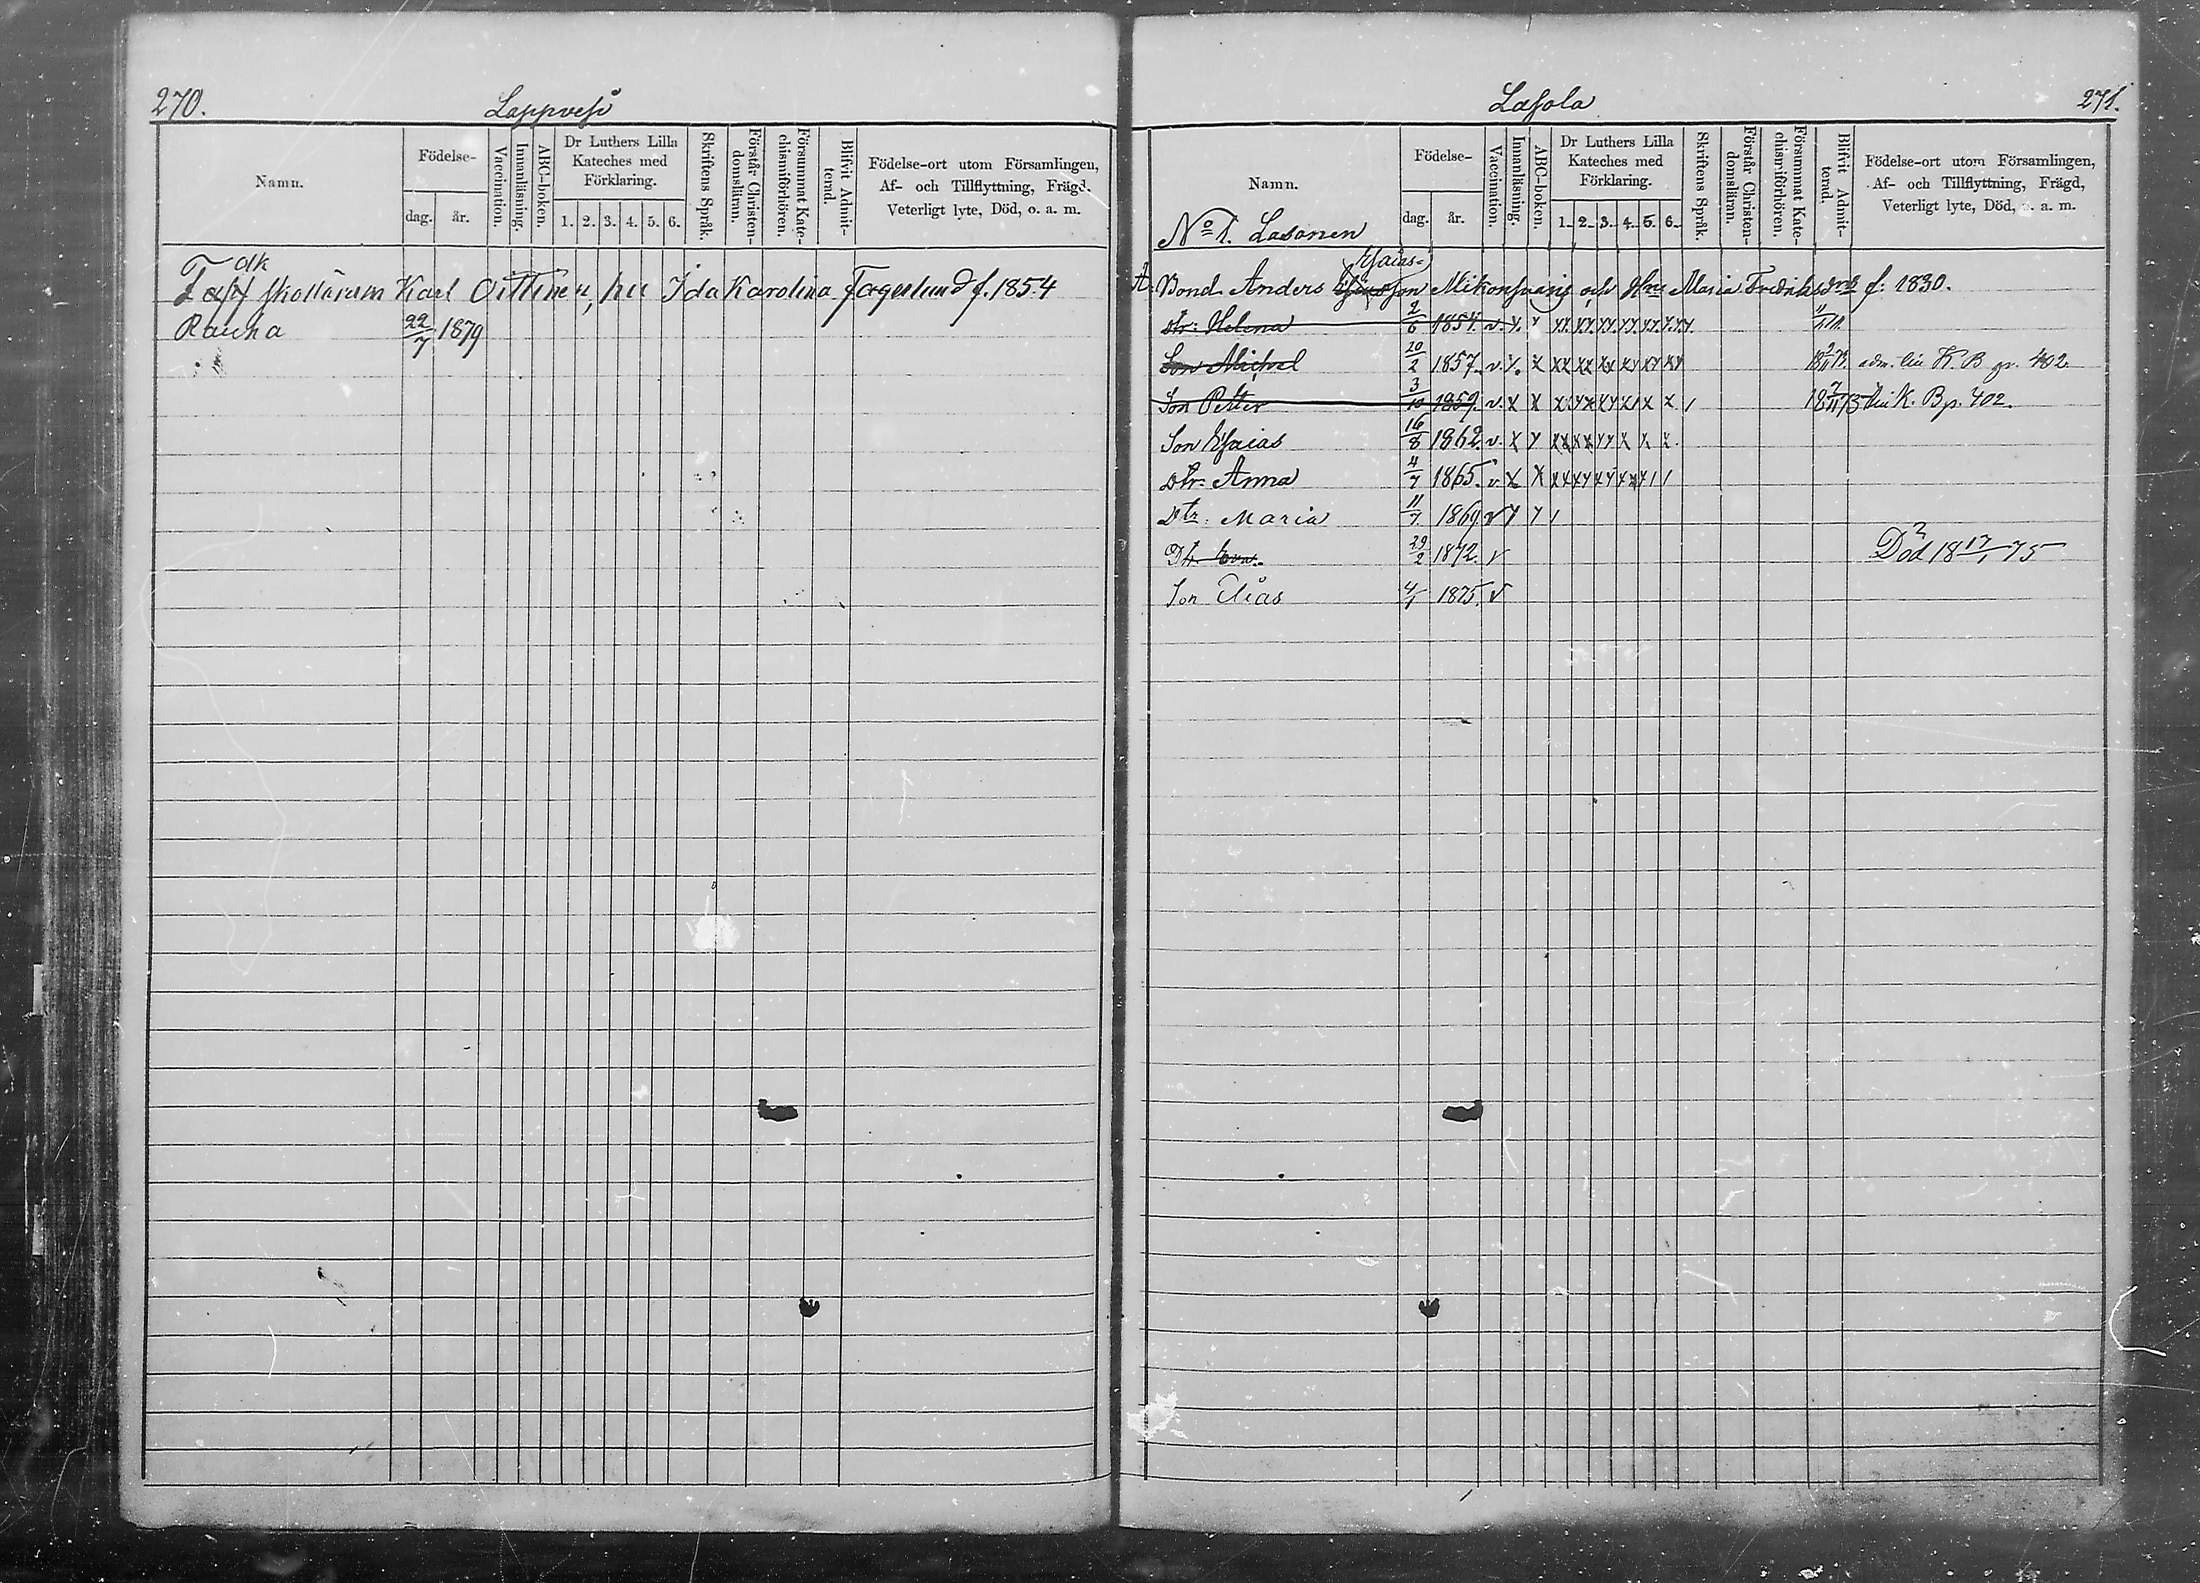 270.
Lappvesi
Namn.
Födelse-
dag.
år.
Vaccination.
Innanläsning.
ABC-boken.
Dr Luthers Lilla
Kateches med
Förklaring.
1. 2. 3. 4. 5. 6.
Skriftens Språk.
Förstår Christen-
domsläran.
Försummat Kate-
chismiförhören.
Blifvit Admit-
terad.
Födelse-ort utom Församlingen,
Af- och Tillflyttning, Frägd,
Veterligt lyte, Död, o. a. m.
Folk
skolläraren Karl Oittinen, hu Ida Karolina Fagerlund f. 1854
Raucha 22/7 1879
Lasola
271.
Namn.
Födelse-
dag.
år.
Vaccination.
Innanläsning.
ABC-boken.
Dr Luthers Lilla
Kateches med
Förklaring.
1. 2. 3. 4. 5. 6.
Skriftens Språk.
Förstår Christen-
domsläran.
Försummat Kate-
chismiförhören.
Blifvit Admit-
terad.
Födelse-ort utom Församlingen,
Af- och Tillflyttning, Frägd,
Veterligt lyte, Död, o. a. m.
No 1. Lasonen
Esaias-
A. Bond. Anders son Mikonsaari och Hru Maria Fredriksdtr f. 1830.
Dtr: Helena 2/6 1854. v.
Son Michel 20/2 1857. v. K. B. 402.
Son Petter 3/10 1859. v. K. B p. 402.
Son Esaias 16/8 1862. v.
Dtr. Anna 4/7 1865. v
Dtr. Maria 11/7 1869 v
Dtr Eva. 29/2 1872. v Död 18 17/1 75
Son Elias 4/1 1875. v